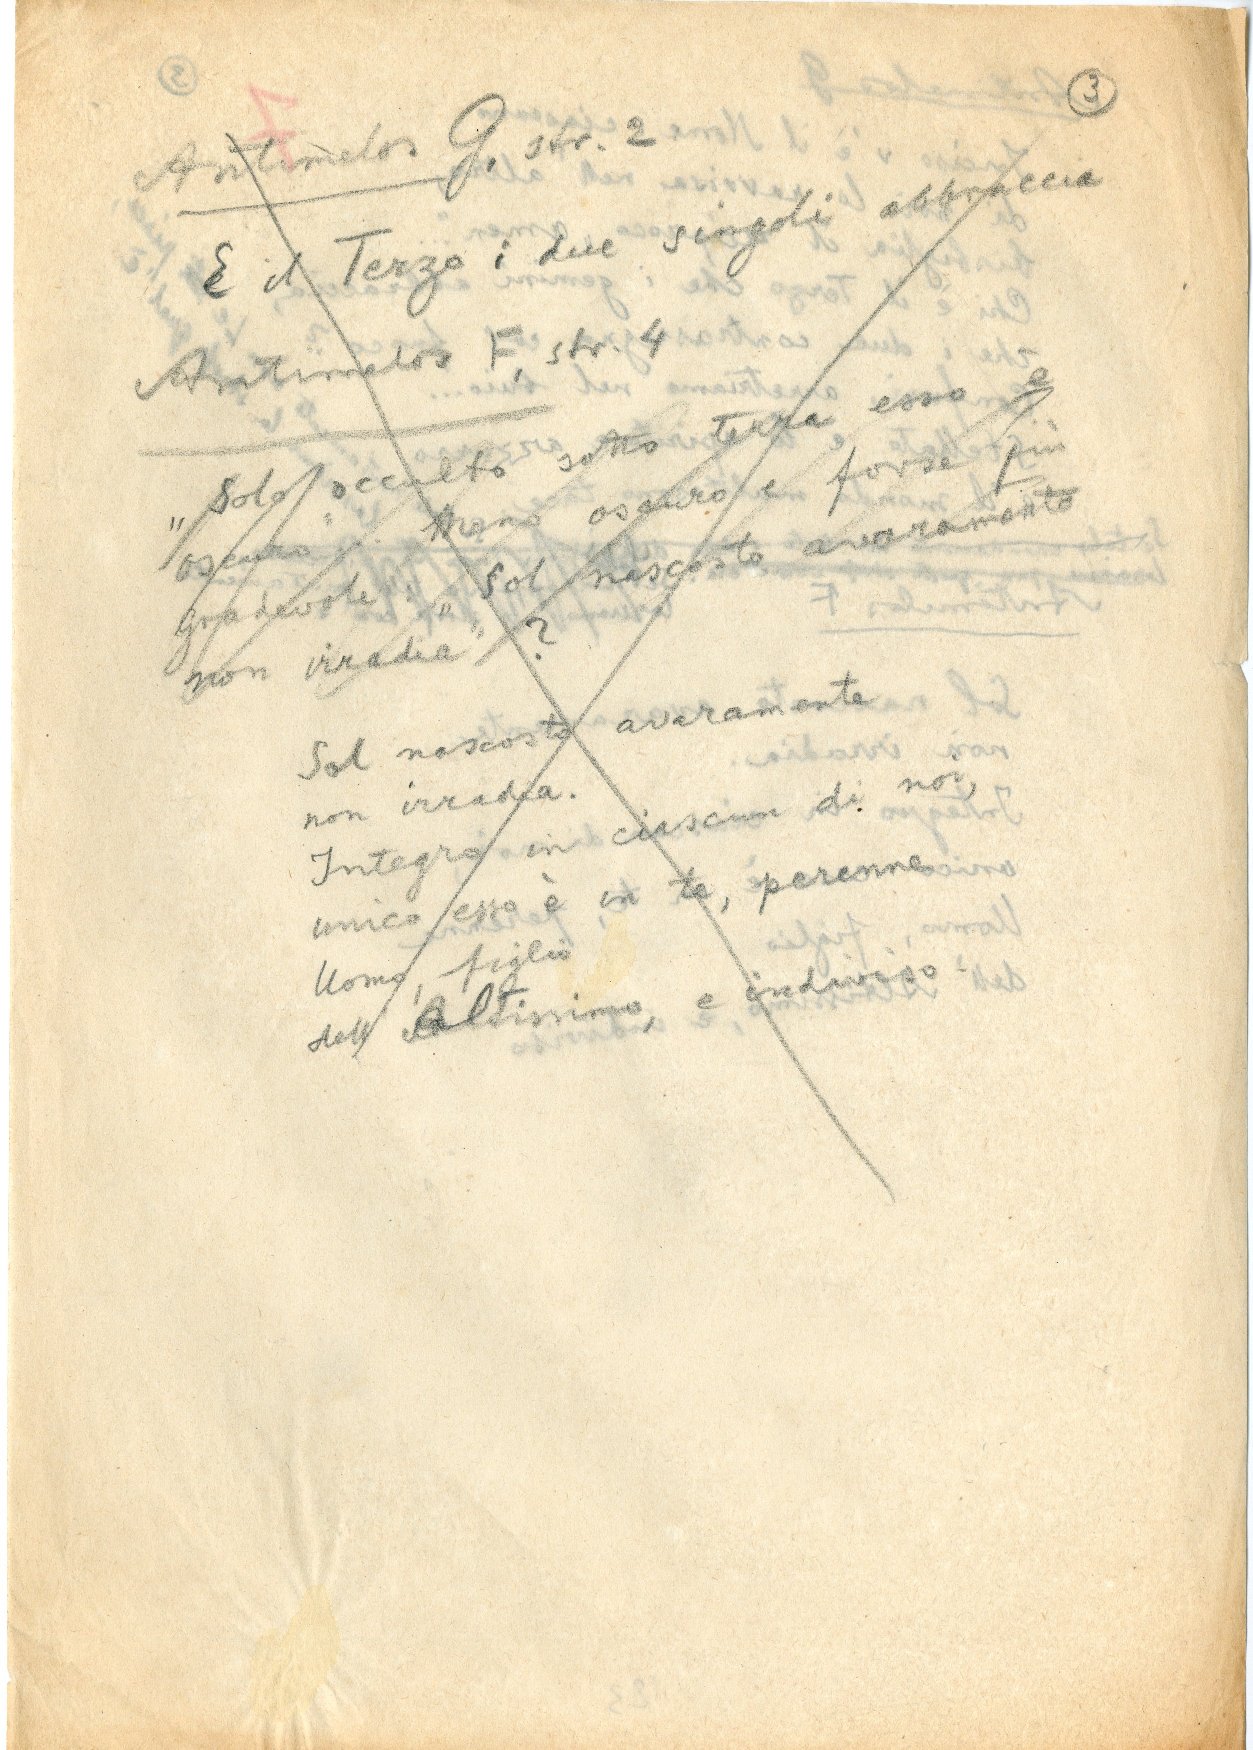 3
Antimelos G, str. 2
E il Terzo i due singoli abbraccia
Antimelos F, str. 4
"Solo occulto sotto terra esso è
oscuro": Meno oscuro e forse più
gradevole: "Sol nascosto avaramente
non irradia"?
Sol nascosto avaramente
non irradia.
Integro in ciascun di noi,
unico esso è in te, perenne
Uomo, figlio
dell'Altissimo, e indiviso.